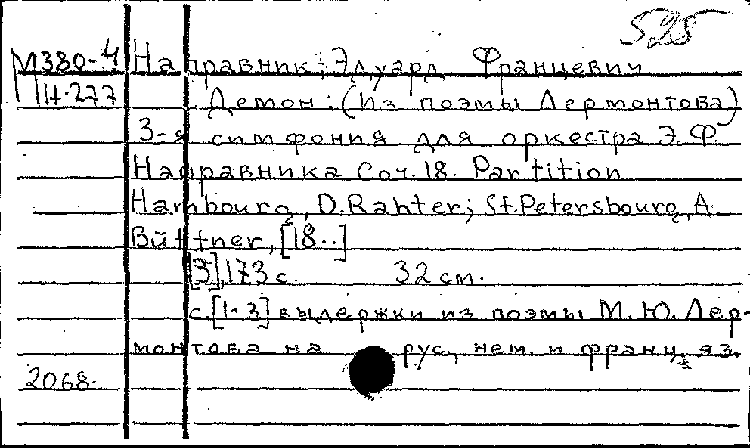 525
М380-4 Направник, Эдуард Францевич
III-277 Демон: (Из поэмы Лермонтова)
3-я симфония для оркестра Э.Ф.
Направника Соч. 18. Partition
Hambourg, D. Rahter; St. Petersbourg, A.
Büttner, [18..]
[3], 173 с 32 см.
с. [1-3] выдержки из поэмы М.Ю. Лер-
монтова на рус., нем. и франц. яз.
2068.